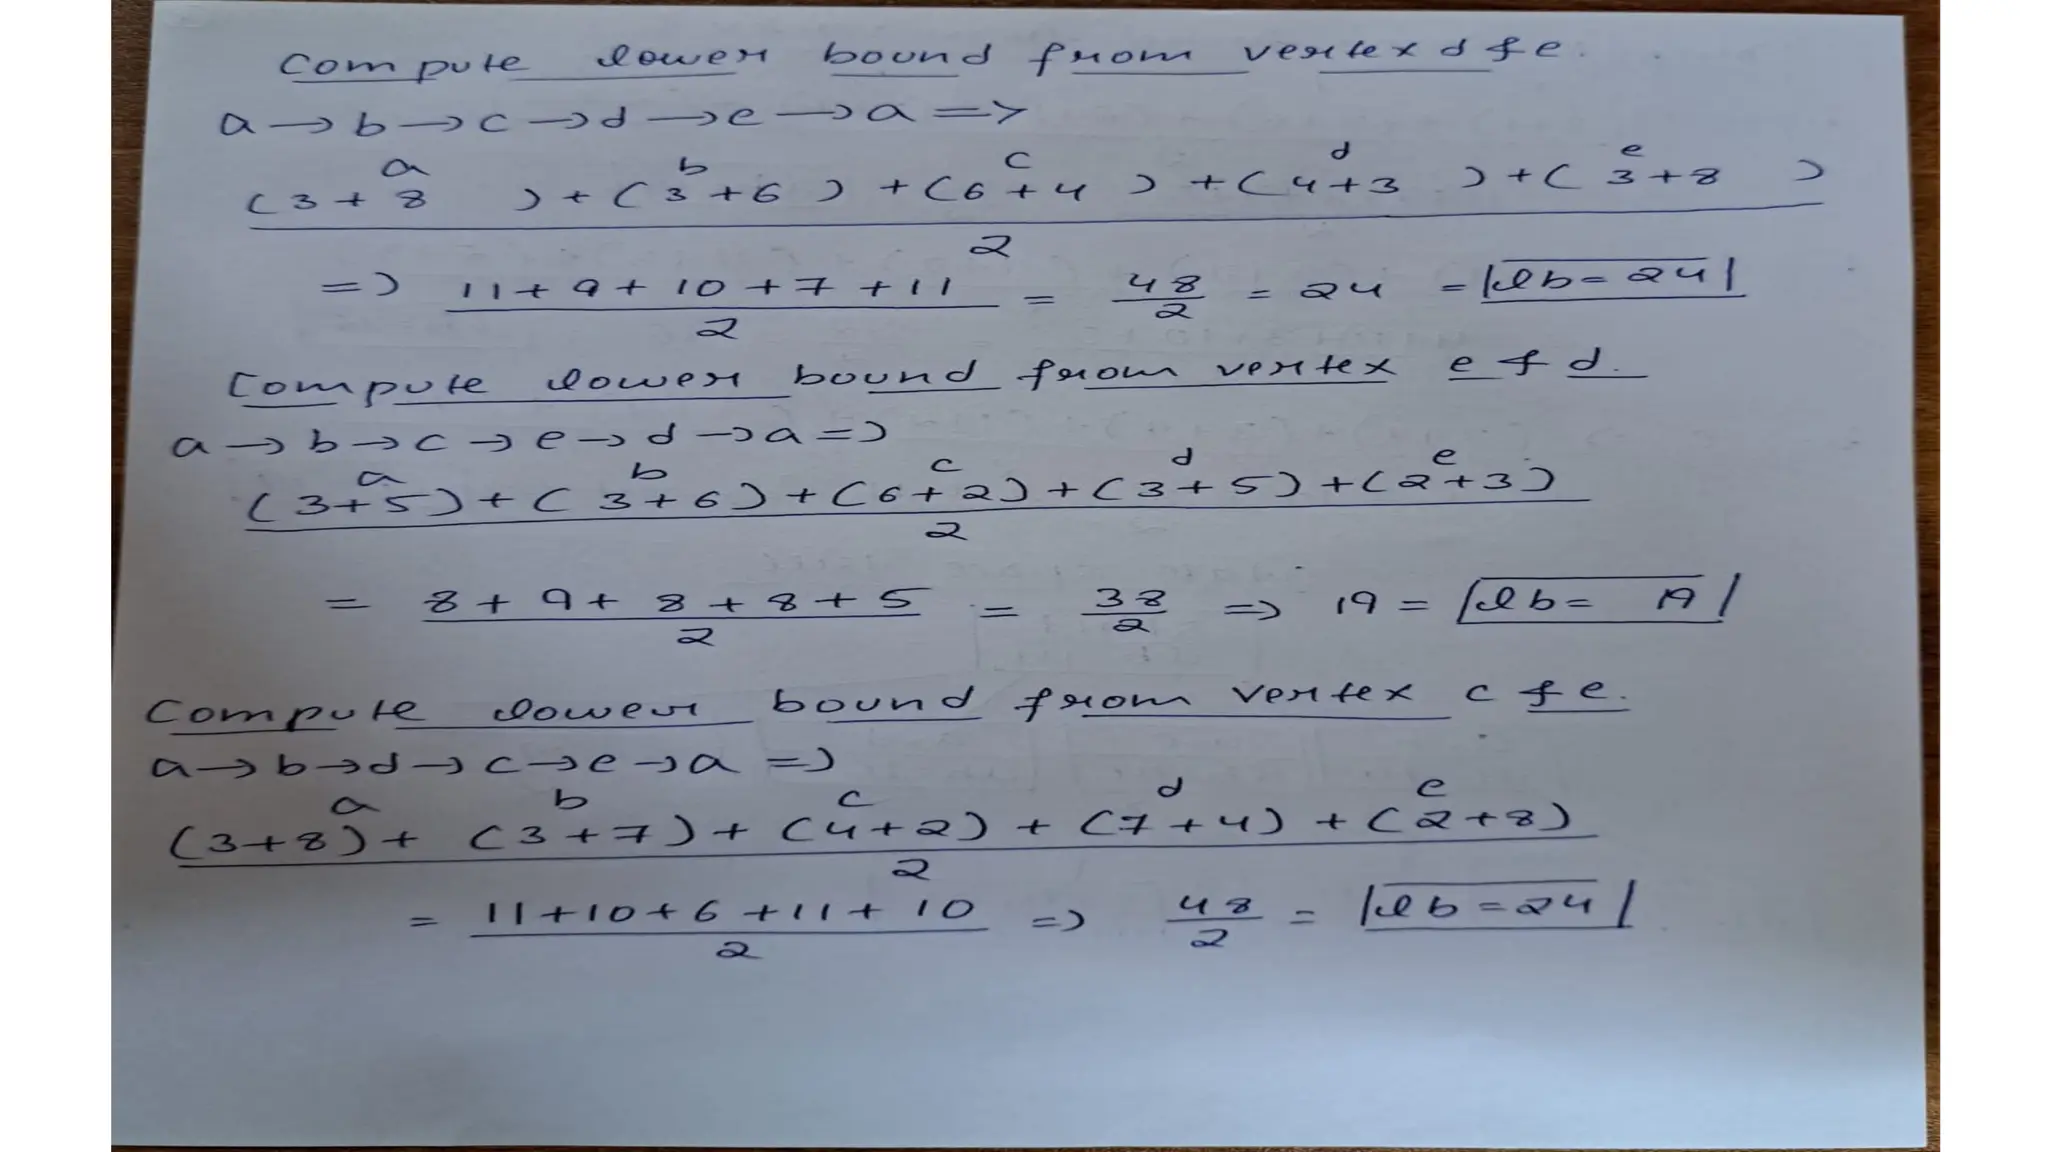 Compute lower bound from vertex d & e.
a → b → c → d → e → a =>
a b c d e
(3+8) + (3+6) + (6+4) + (4+3) + (3+8)
2
=> 11+9+10+7+11 = 48 = 24 = lb = 24
2 2
Compute lower bound from vertex e & d.
a → b → c → e → d → a =>
a b c d e
(3+5) + (3+6) + (6+2) + (3+5) + (2+3)
2
= 8+9+8+8+5 = 38 => 19 = lb = 19
2 2
Compute lower bound from vertex c & e.
a → b → d → c → e → a =>
a b c d e
(3+8) + (3+7) + (4+2) + (7+4) + (2+8)
2
= 11+10+6+11+10 => 48 = lb = 24
2 2